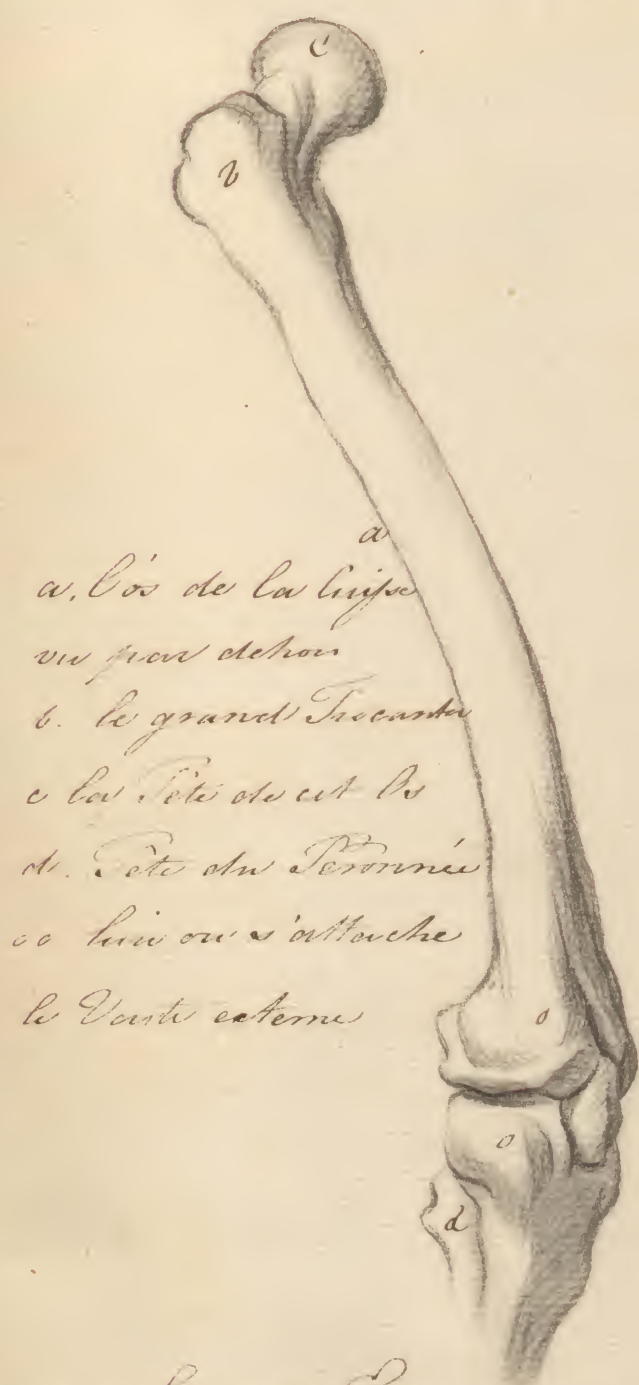 c
b
a
a. l'os de la Cuisse
vu par dehors
b. le grand Trocanter
c la Tête de cet Os
d. Tête du Peronnée
oo lieu ou s'attache
le Vaste externe
o
o
d